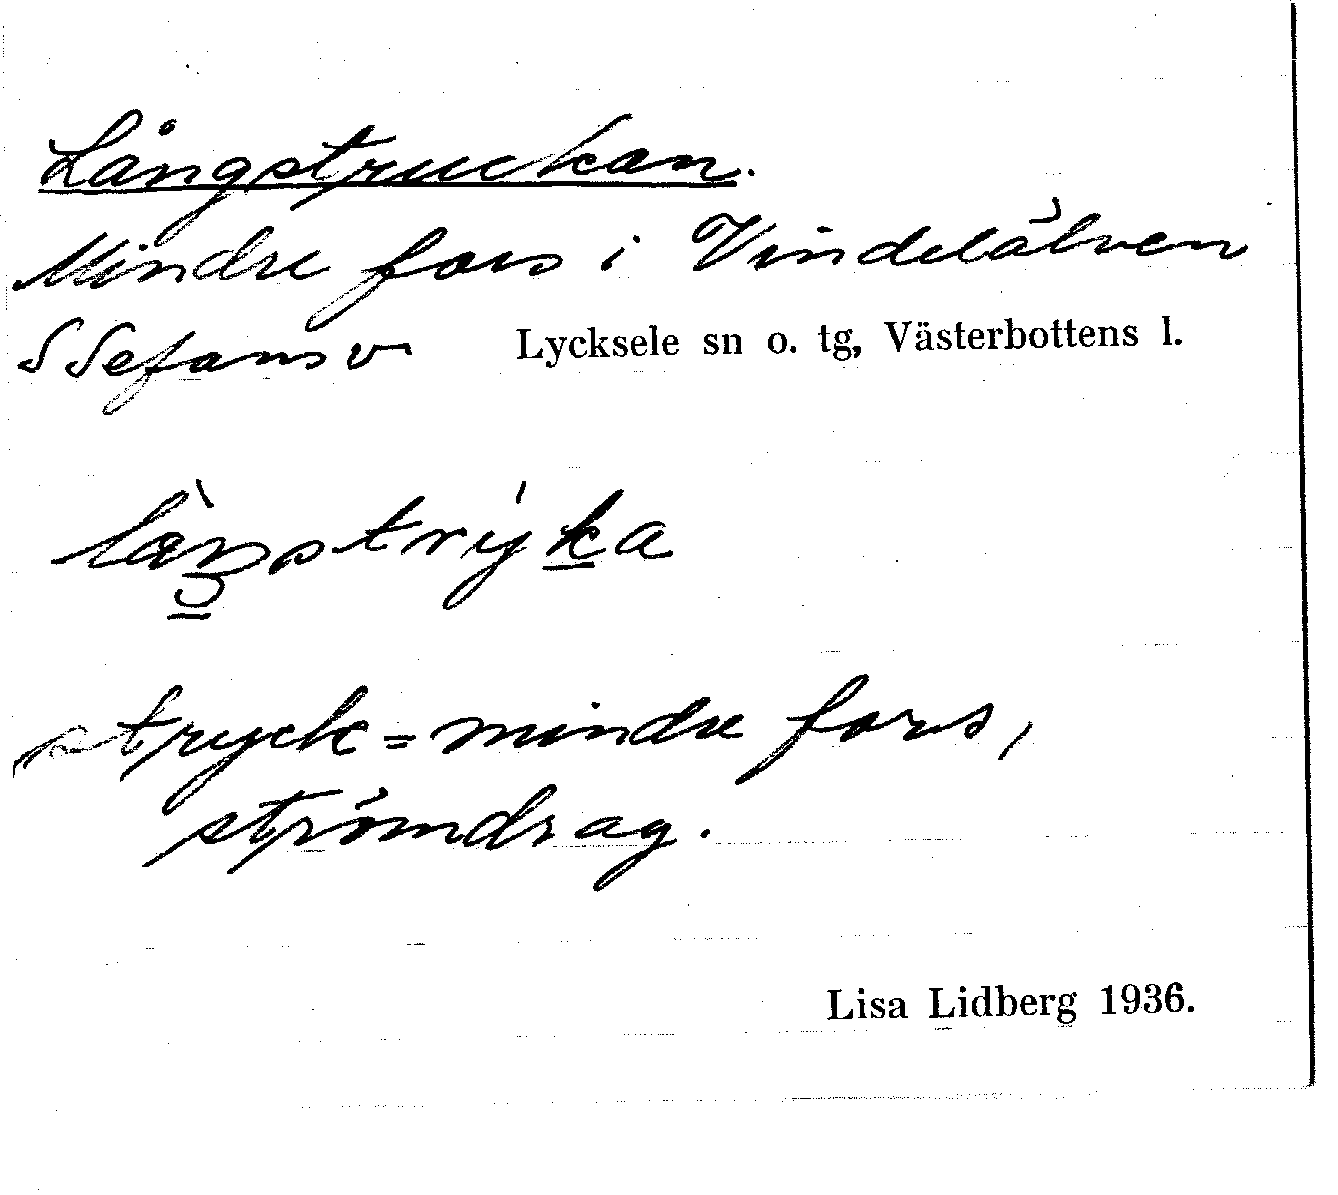 Långstruckan.
Mindre fors i Vindelälven
S Sefansv Lycksele sn o. tg, Västerbottens l.
stryck = mindre fors,
strömdrag.
Lisa Lidberg 1936.